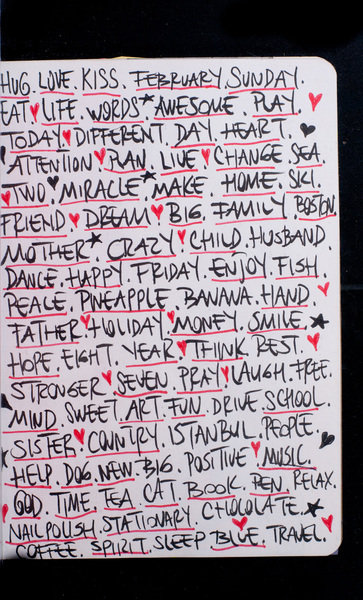 HUG. LOVE. KISS. FEBRUARY. SUNDAY.
EAT♥LIFE. WORDS★AWESOME. PLAY. ♥
TODAY♥DIFFERENT. DAY. HEART. ♥
ATTENTION♥PLAN. LIVE♥CHANGE. SEA.
♥TWO♥MIRACLE★MAKE. HOME. SKI.
FRIEND♥DREAM♥BIG. FAMILY. BOSTON.
MOTHER★CRAZY♥CHILD. HUSBAND.
DANCE. HAPPY. FRIDAY. ENJOY. FISH.
PEACE. PINEAPPLE. BANANA. HAND. ♥
FATHER♥HOLIDAY. MONEY. SMILE. ★
HOPE. EIGHT. YEAR♥THINK. REST. ♥
STRONGER♥SEVEN. PRAY♥LAUGH. FREE.
MIND. SWEET. ART. FUN. DRIVE. SCHOOL.
SISTER♥COUNTRY. ISTANBUL. PEOPLE. ♥
HELP. DOG. NEW. BIG. POSITIVE♥MUSIC.
♥GOD. TIME. TEA. CAT. BOOK. PEN. RELAX.
NAILPOLISH. STATIONARY. CHOCOLATE. ★
COFFEE. SPIRIT. SLEEP. BLUE. TRAVEL. ♥